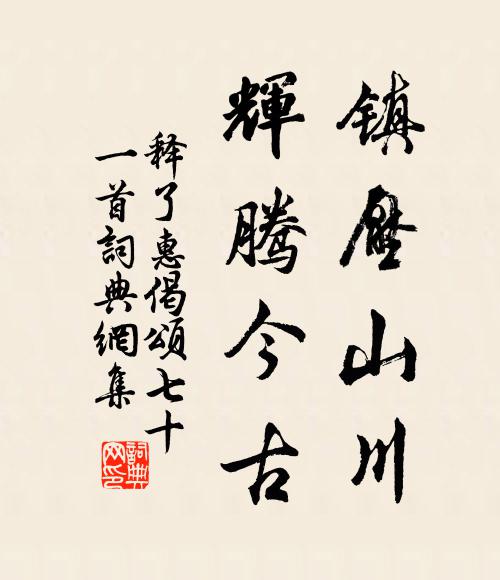 镇壓山川
輝騰今古
释了惠偈頌七十
一首詞典網集
詞典网印